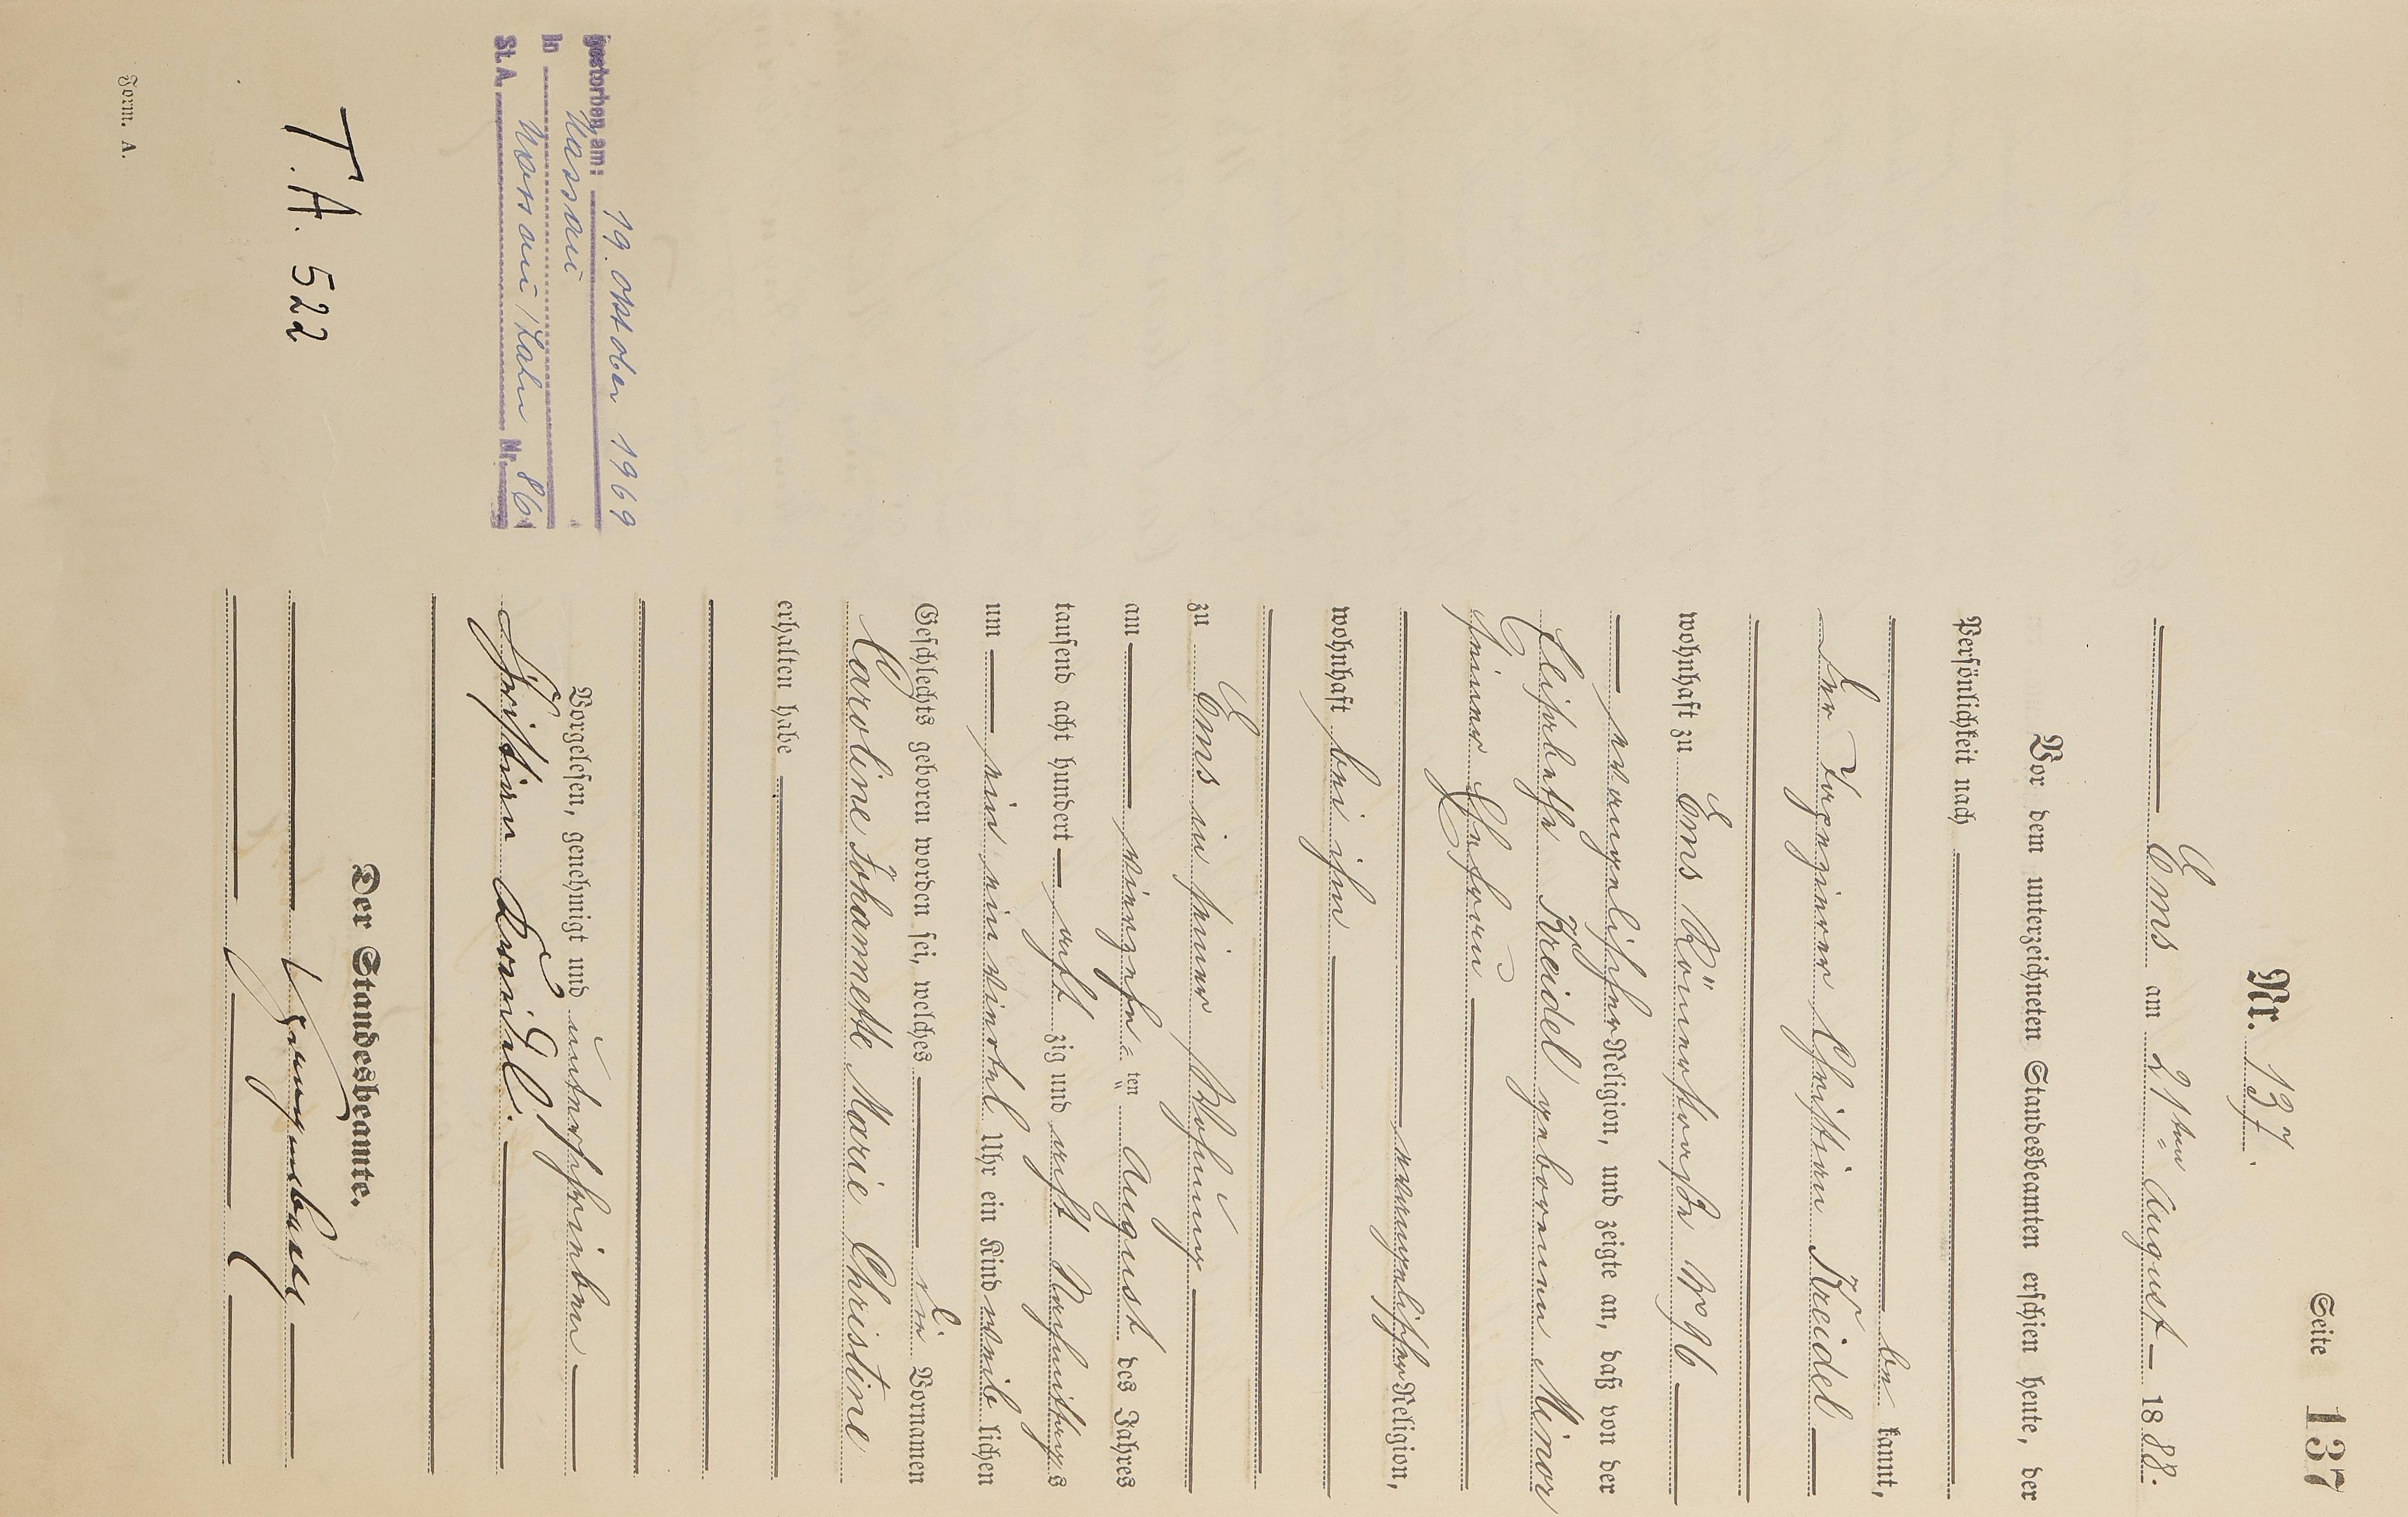 Seite 137
Nr. 137.
Ems am 21ten August 1888.
Vor dem unterzeichneten Standesbeamten erschien heute, der
Persönlichkeit nach
be kannt,
der Tapezierer Christian Kreidel
wohnhaft zu Ems Römerstraße No 96
evangelischer Religion, und zeigte an, daß von der
Elisabetha Kreidel geborenen Minor
seiner Ehefrau
evangelischer Religion,
wohnhaft bei ihm
zu Ems in seiner Wohnung
am vierzehn ten August des Jahres
tausend acht hundert acht zig und acht Nachmittags
um ein ein viertel Uhr ein Kind weib lichen
Geschlechts geboren worden sei, welches die Vornamen
Caroline Johannette Marie Christine
erhalten habe
Vorgelesen, genehmigt und unterschrieben
Christian Kreidel.
Der Standesbeamte.
gestorben am: 19. Oktober 1969
In Nassau
St. A. Nassau/Lahn Nr. 86
T.A. 522
Form. A.